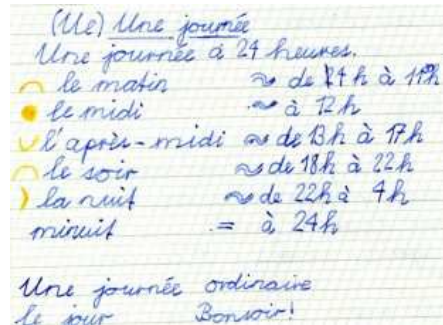 (Ue) Une journée
Une journée à 24 heures.
le matin ~ de 4h à 11h
le midi ~ à 12h
l'après-midi ~ de 13h à 17h
le soir ~ de 18h à 22h
la nuit ~ de 22h à 4h
minuit = à 24h
Une journée ordinaire
le jour Bonsoir!